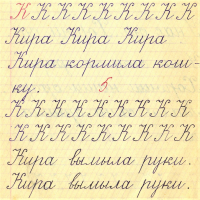 К К К К К К К К К
Кира Кира Кира
Кира кормила кош-
ку. 5
К К К К К К К К К К
К К К К К К К К К
Кира вымыла руки.
Кира вымыла руки.